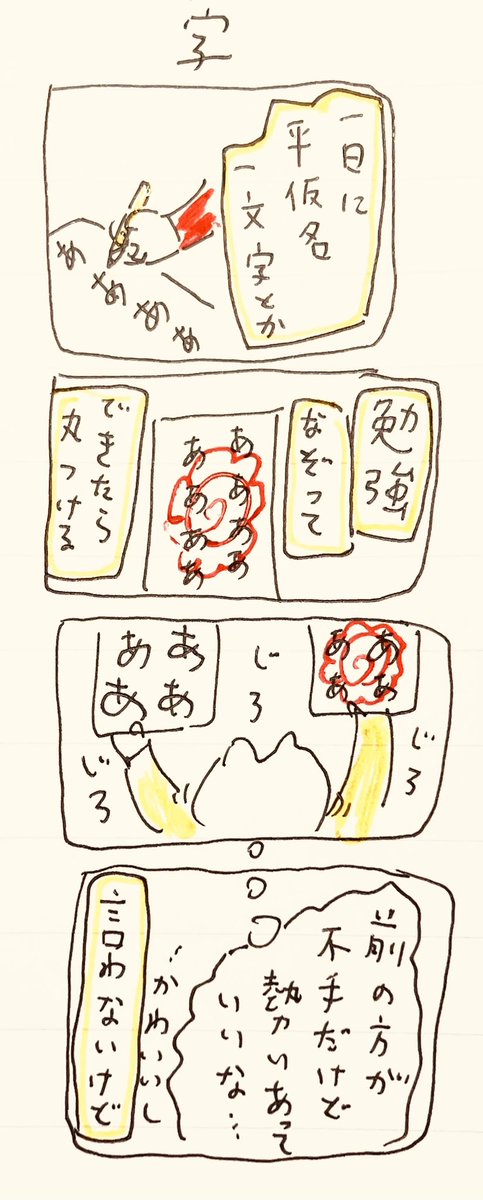 字
一日に
平仮名
一文字とか
勉強
なぞって
ああああ
ああああ
できたら
丸つける
じろ
ああ
ああ
じろ
ああ
ああ
じろ
前の方が
不手だけど
勢いあって
いいな…
…かわいいし
言わないけど